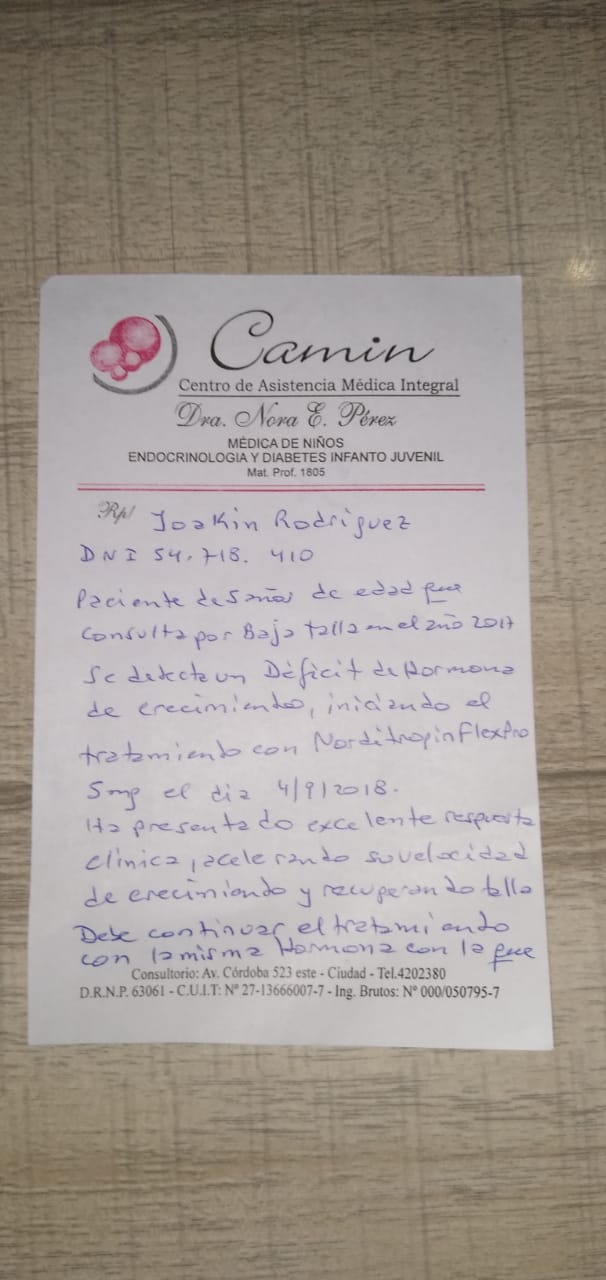 Camin
Centro de Asistencia Médica Integral
Dra. Nora E. Pérez
MÉDICA DE NIÑOS
ENDOCRINOLOGIA Y DIABETES INFANTO JUVENIL
Mat. Prof. 1805
Rp/ Joakin Rodriguez
DNI 54.718.410
Paciente de 5 años de edad que
consulta por Baja talla en el año 2017
Se detecta un Déficit de Hormona
de crecimiento, iniciando el
tratamiento con Norditropin FlexPro
5mg el dia 4/9/2018.
Ha presentado excelente respuesta
clinica, acelerando su velocidad
de crecimiendo y recuperando talla
Debe continuar el tratamiento
con la misma Hormona con la que
Consultorio: Av. Córdoba 523 este - Ciudad - Tel.4202380
D.R.N.P. 63061 - C.U.I.T: Nº 27-13666007-7 - Ing. Brutos: Nº 000/050795-7